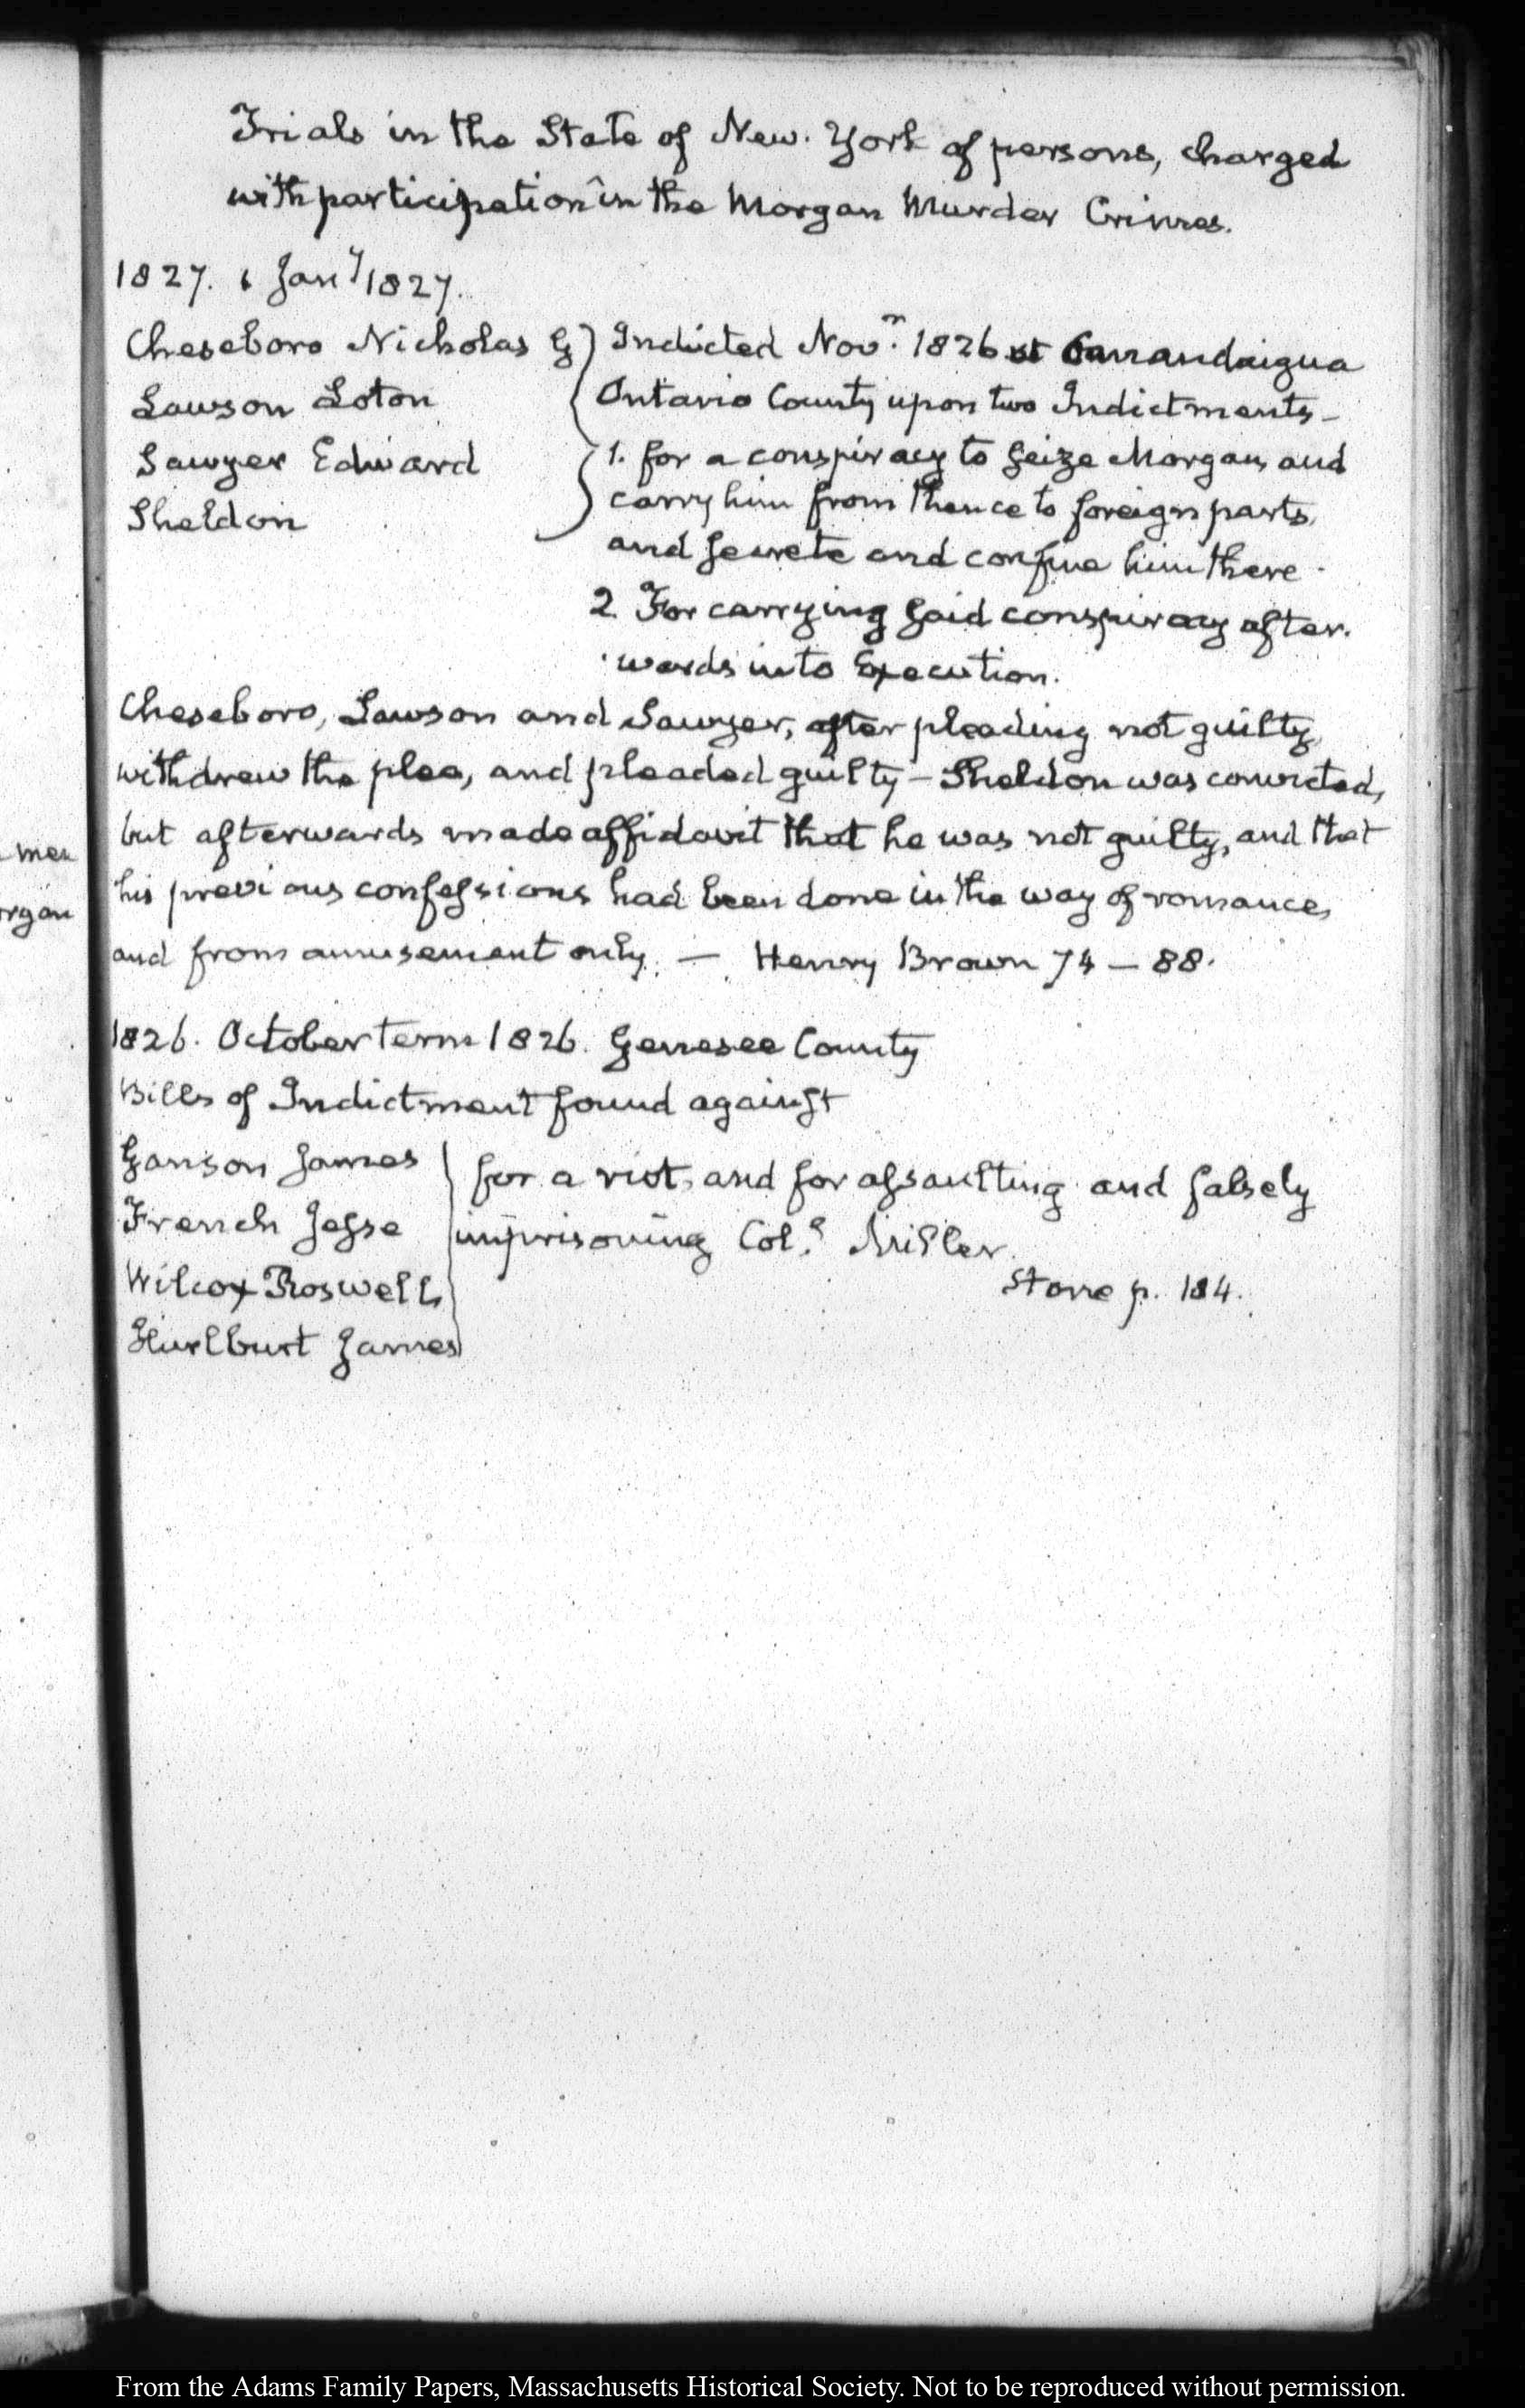 Trials in the State of New-York of persons, charged
with participation in the Morgan Murder Crimes.
1827. 1 Jany 1827.
Cheseboro Nicholas G } Indicted Novr. 1826 at Canandaigua
Lawson Loton Ontario County upon two Indictments—
Sawyer Edward 1. for a conspiracy to seize Morgan, and
Sheldon carry him from thence to foreign parts,
and secrete and confine him there.
2 For carrying said conspiracy after-
-wards into Execution.
Cheseboro, Lawson and Sawyer, after pleading not guilty,
withdrew the plea, and pleaded guilty— Sheldon was convicted,
but afterwards made affidavit that he was not guilty, and that
his previous confessions had been done in the way of romance,
and from amusement only. — Henry Brown 74—88.
1826. October term 1826. Genesee County
Bills of Indictment found against
Ganson James } for a riot, and for assaulting and falsely
French Jesse imprisoning Coll. Miller.
Wilcox Roswell Stone p. 184.
Hurlburt James
men
organ
From the Adams Family Papers, Massachusetts Historical Society. Not to be reproduced without permission.